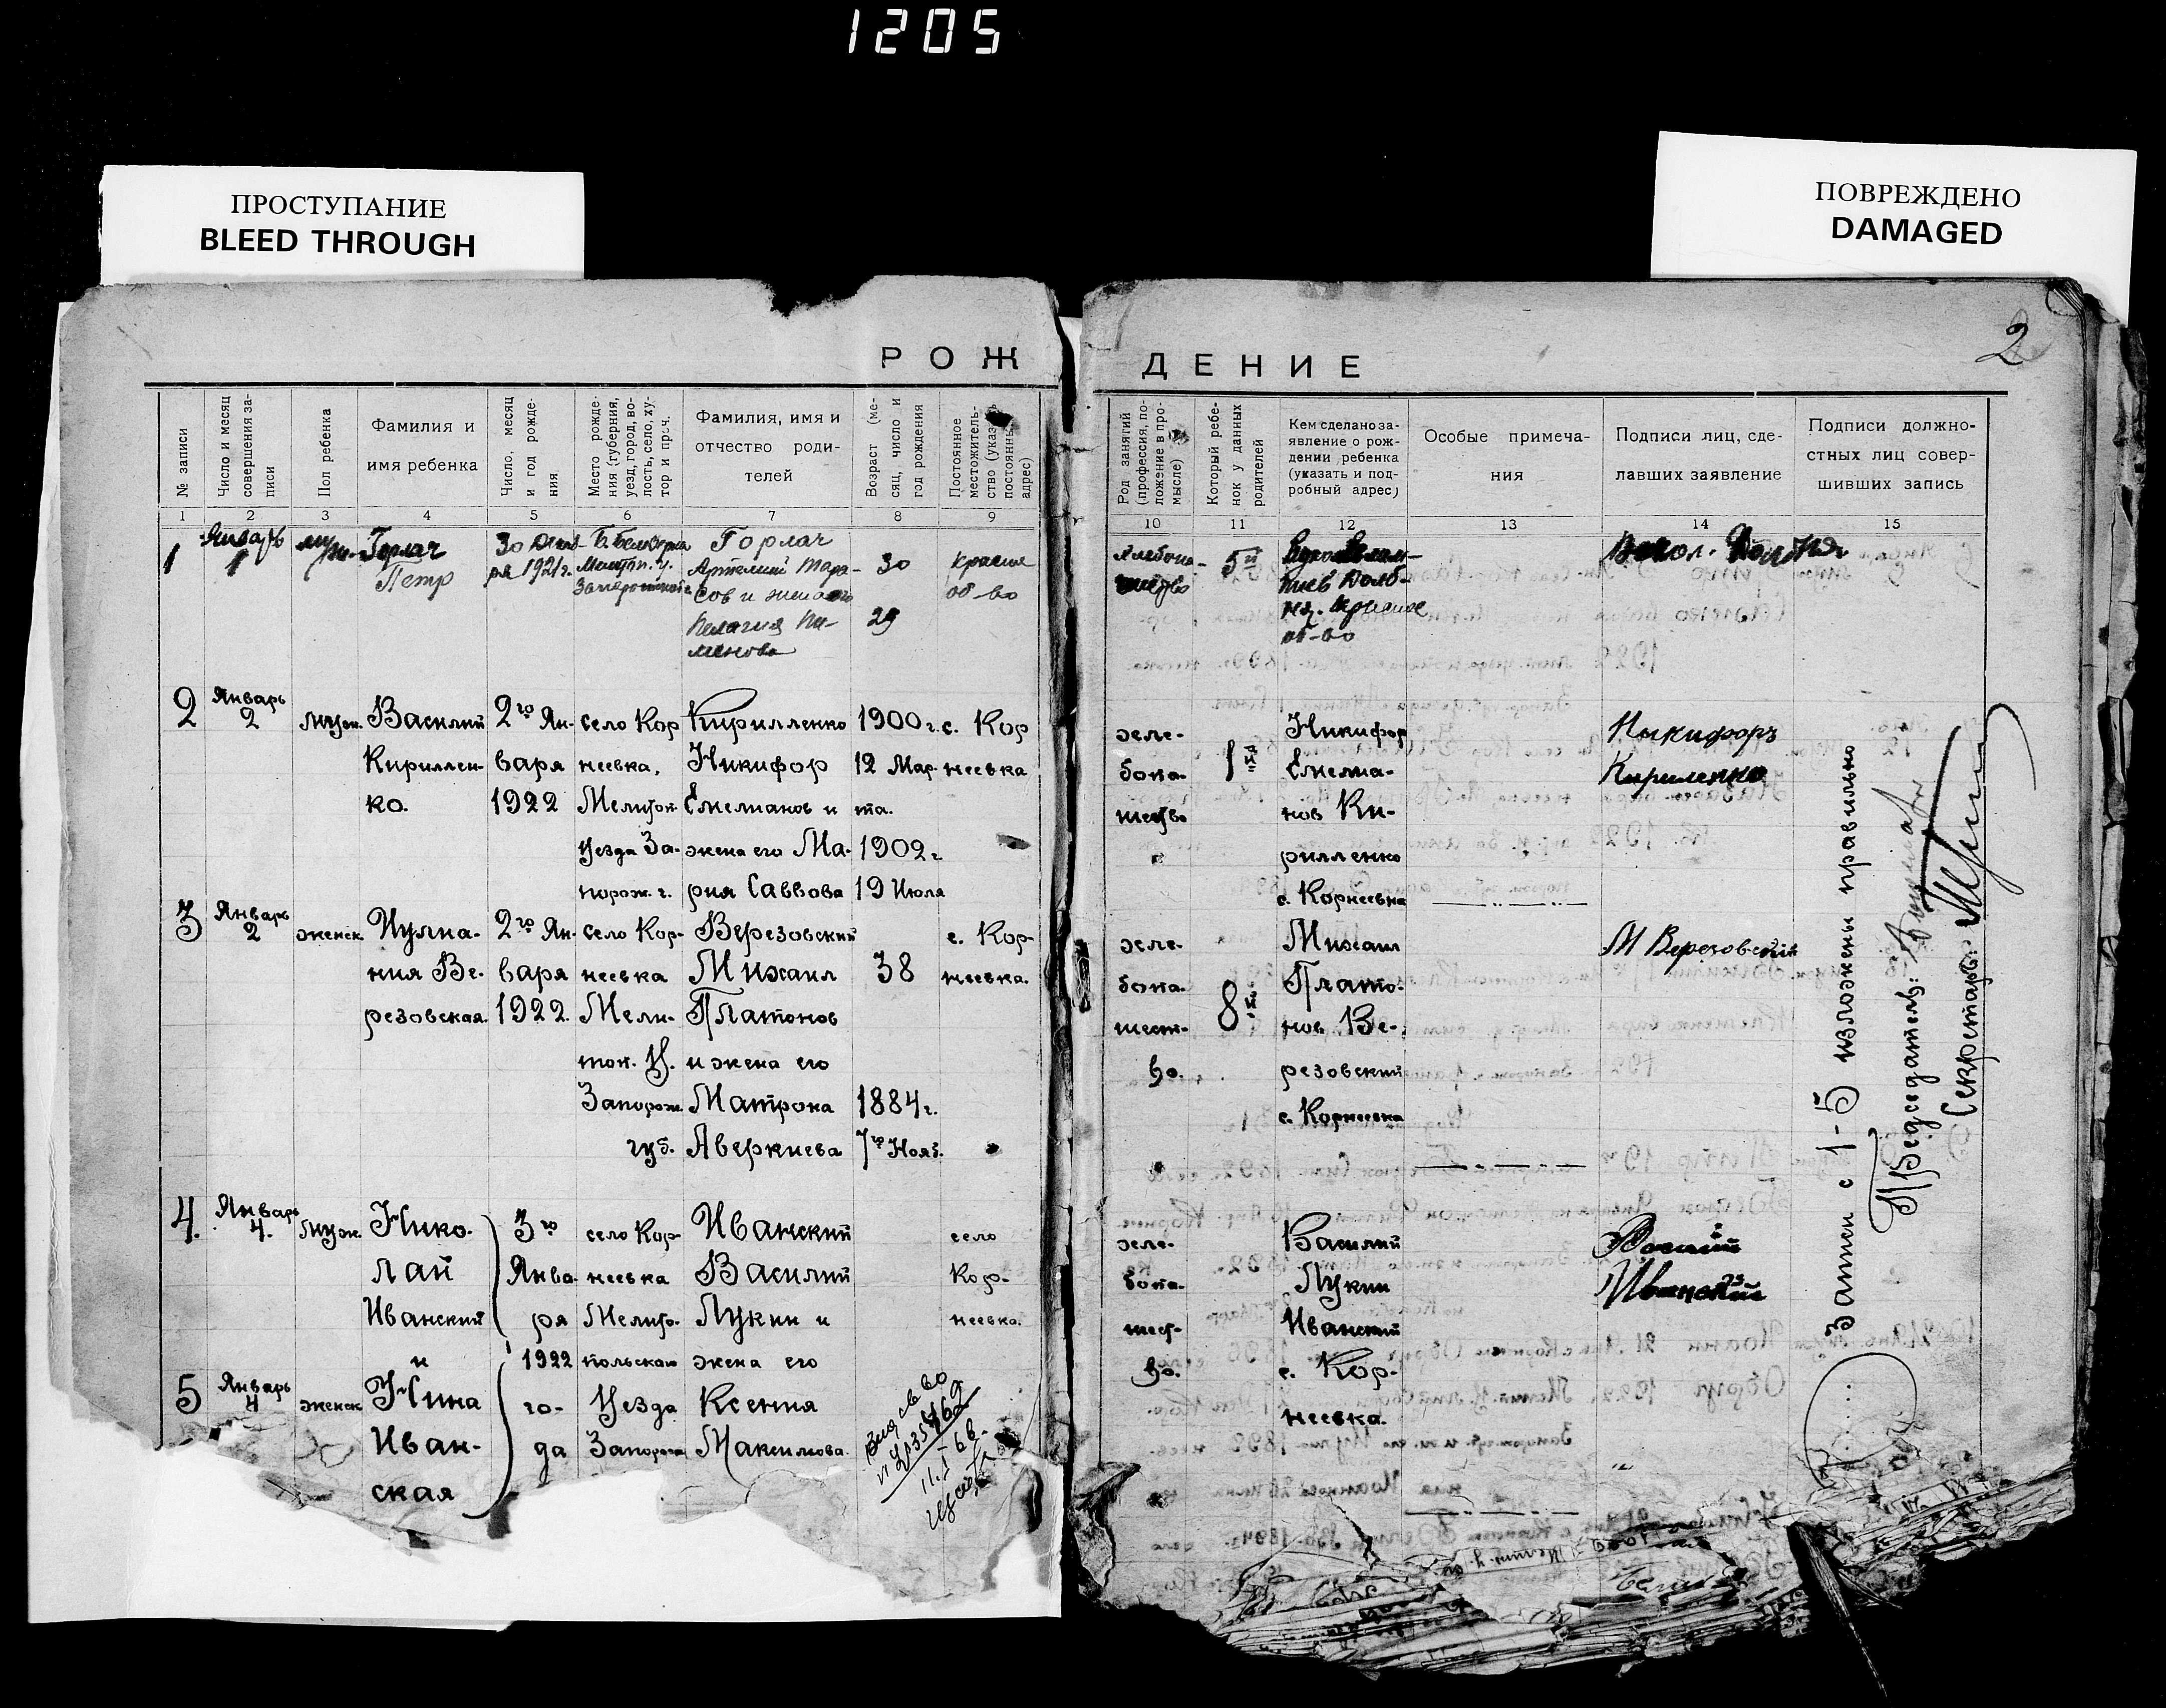 1205
ПРОСТУПАНИЕ
BLEED THROUGH
ПОВРЕЖДЕНО
DAMAGED
2
РОЖДЕНИЕ
№ записи
Число и месяц совершения за-
писи
Пол ребенка
Фамилия и
имя ребенка
Число, месяц
и год рожде-
ния
Место рожде-
ния (губерния,
уезд, город, во-
лость, село, ху-
тор и проч.
Фамилия, имя и
отчество роди-
телей
Возраст (ме-
сяц, число и
год рождения
Постоянное
местожитель-
ство (указать
постоянный
адрес)
Род занятий
(профессия, по-
ложение в про-
мысле)
Который ребе-
нок у данных
родителей
Кем сделано за-
явление о рож-
дении ребенка
(указать и под-
робный адрес)
Особые примеча-
ния
Подписи лиц, сде-
лавших заявление
Подписи должно-
стных лиц совер-
шивших запись
1 2 3 4 5 6 7 8 9 10 11 12 13 14 15
1
Январь
1
муж.
Горлач
Петр
30 Декаб-
ря 1921 г.
Горлач
Артемий Тара-
сов и жена его
Пелагия Пи-
менова
30
29
Красное
об-во
5й
об-во
2
Январь
2
муж.
Василий
Кириллен-
ко.
2го Ян-
варя
1922
село Кор
неевка,
Мелитоп.
уезда За-
порож. г.
Кирилленко
Никифор
Емелианов и
жена его Ма-
рия Саввова
1900 г.
12 Мар-
та.
1902 г.
19 Июля
с. Кор
неевка
хле-
бопа-
шество
1й
Никифор
Емелиа-
нов Ки-
рилленко
с. Корнеевка
Ныкифоръ
Кириленко
3
Январь
2
женск.
Иулиа-
ния Бе-
резовская.
2го Ян-
варя
1922.
село Кор-
неевка
Мели-
топ. У.
Запорож.
губ.
Березовский
Михаил
Платонов
и жена его
Матрона
Аверкиева
38
1884 г.
7го Нояб.
с. Кор-
неевка.
хле-
бопа-
шест-
во.
8
Михаил
Плато-
нов Бе-
резовский
с. Корнеевка
М Березовский
4.
Январь
4.
муж.
Нико-
лай
Иванский
и
3го
Янва-
ря
1922
го-
да
село Кор-
неевка
Мелито-
польскаго
Уезда
Запорож
Иванский
Василий
Лукин и
жена его
Ксения
Максимова.
село
Кор-
неевка.
хле-
бопа-
шест-
во.
Василий
Лукин
Иванский
с. Кор-
неевка.
Василий
Иванский
5
Январь
4
женск
Нина
Иван-
ская
11.I 66.
Записи с 1-5 изложены правильно
Председатель:
Секретарь: